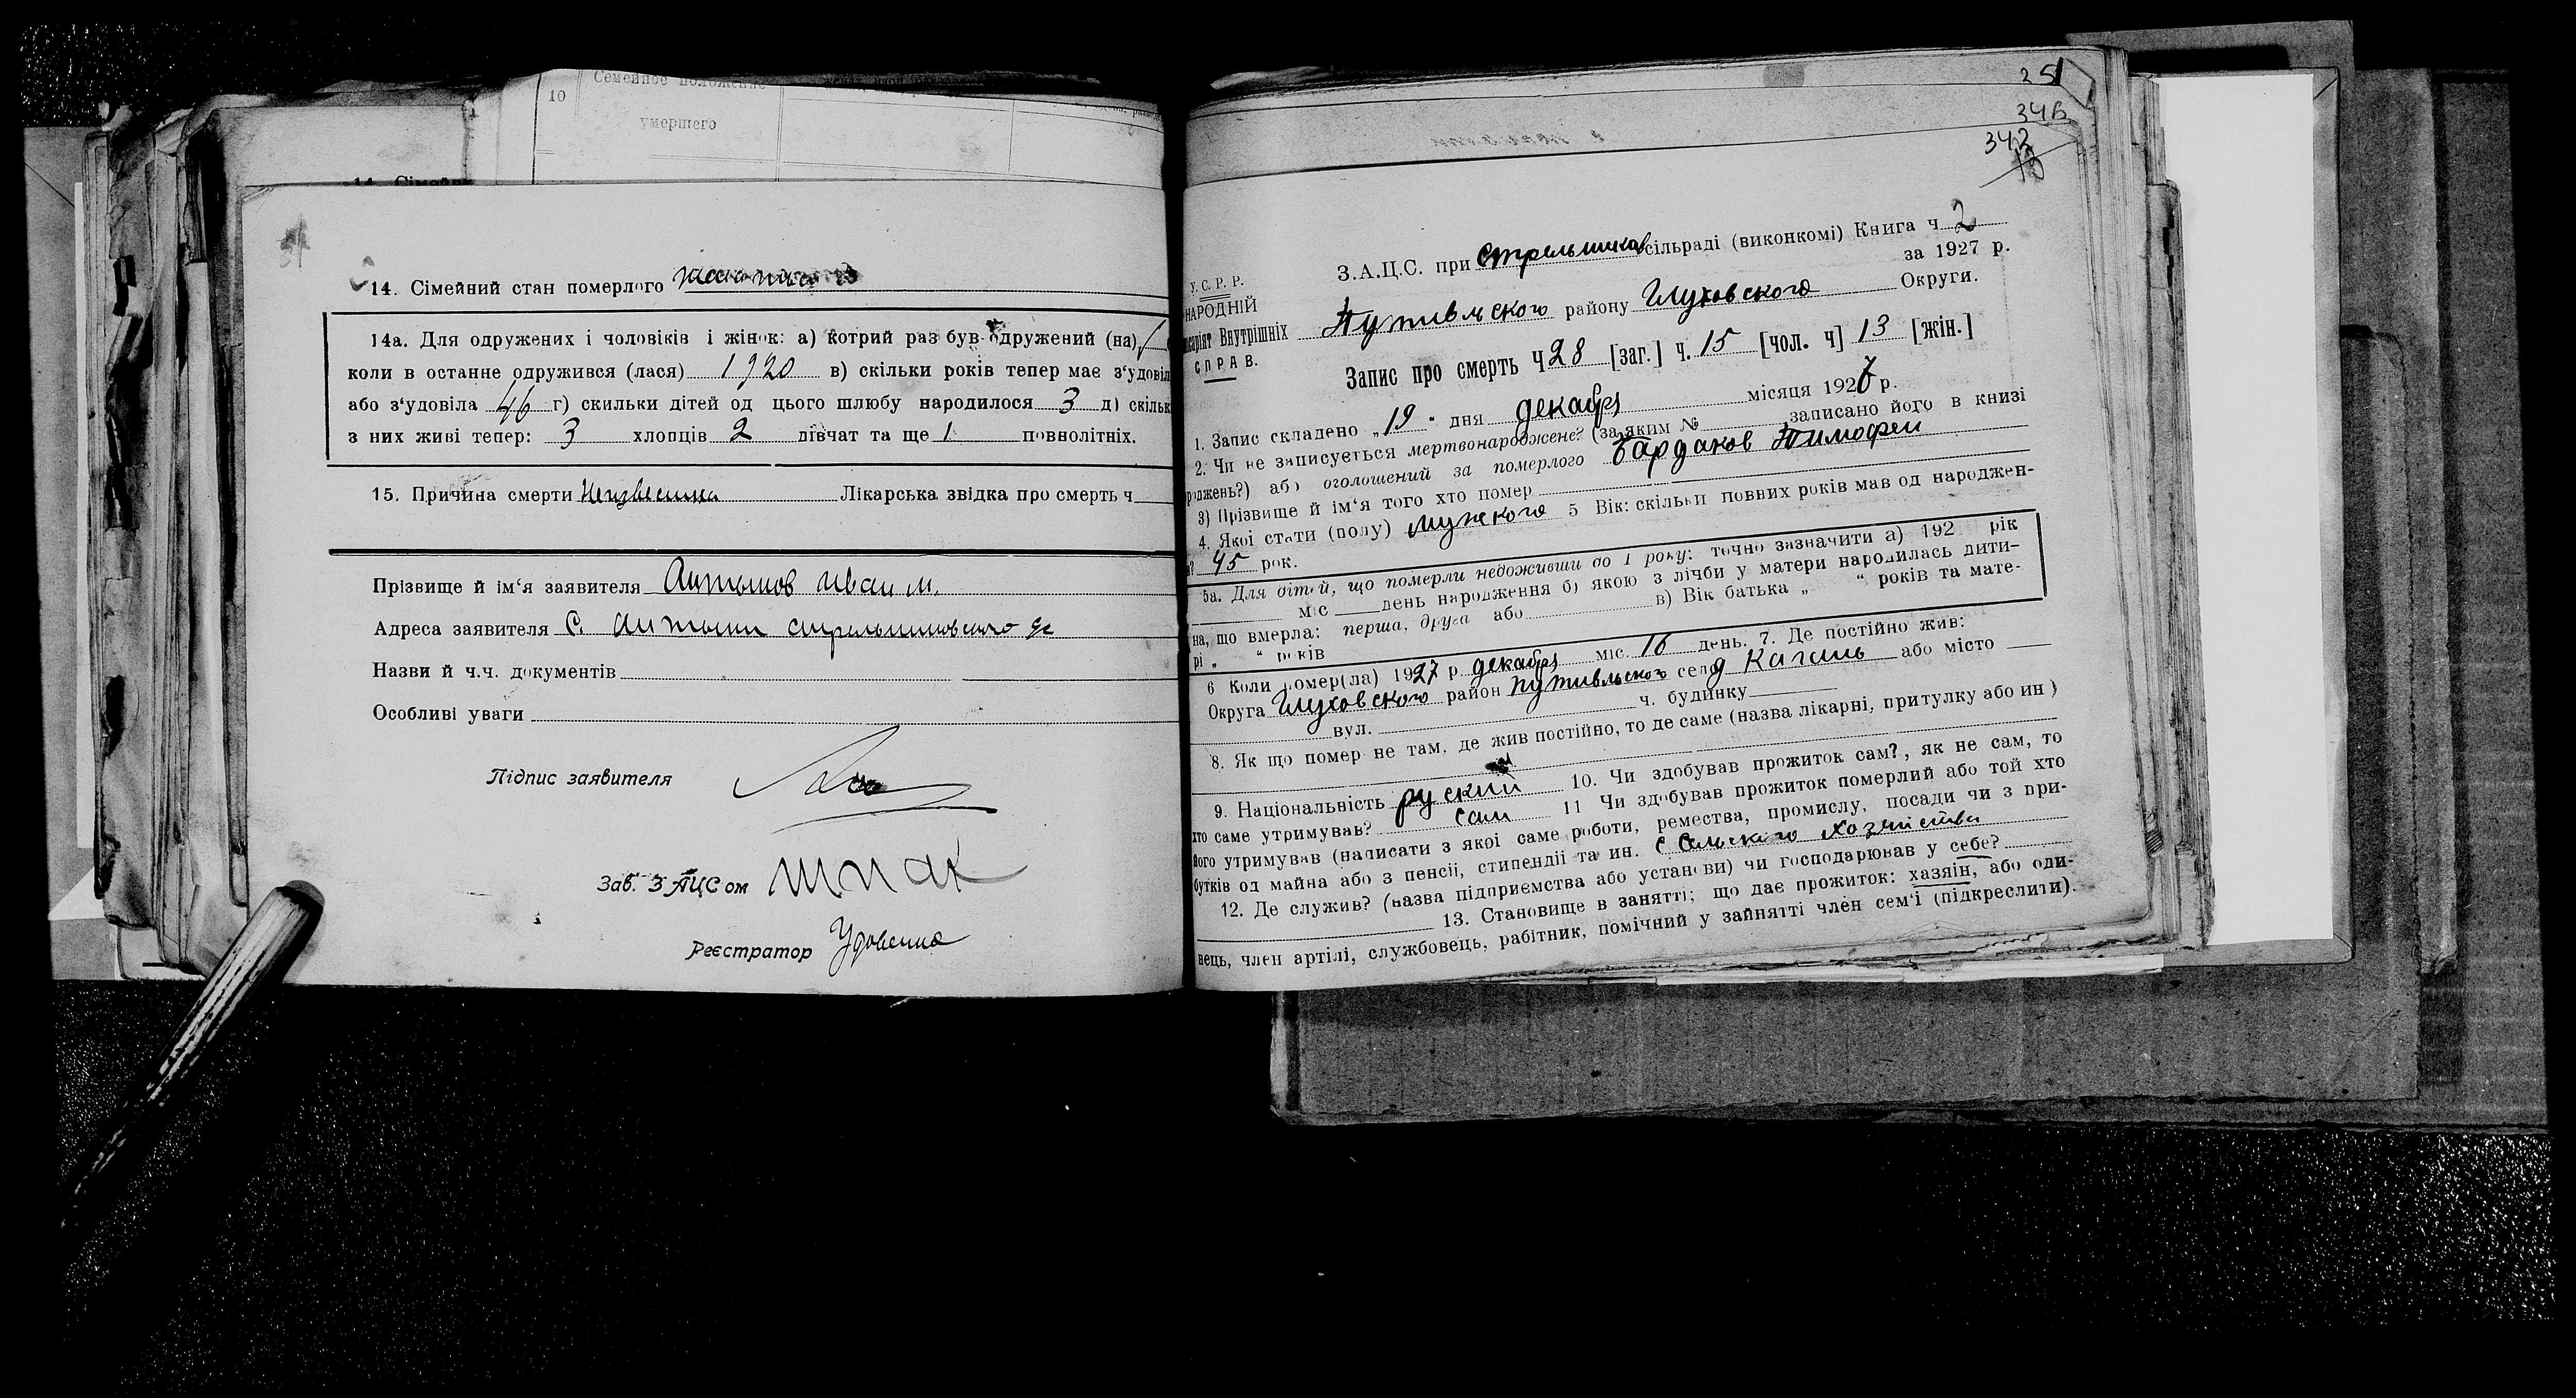 10
Семейное положение
умершего
14. Сімейний стан померлого
14а. Для одружених і чоловіків і жінок: а) котрий раз був одружений (на)
коли в останне одружився (лася) 1920 в) скільки років тепер має з'удовіл
або з'удовіла 46 г) скильки дітей од цього шлюбу народилося 3 д) скільк
з них живі тепер: 3 хлопців 2 дівчат та ще 1 повнолітніх.
15. Причина смерти Неизвестна Лікарська звідка про смерть ч
Прізвище й ім'я заявителя Антонов Иван М.
Адреса заявителя С.
Назви й ч.ч. документів
Особливі уваги
Підпис заявителя
Зав. ЗАЦСом Шпак
Реєстратор Удовенко
251
34в
342
У.С.Р.Р.
НАРОДНІЙ
Внутрішніх
СПРАВ.
З.А.Ц.С. при Стрельников сільраді (виконкомі) Книга ч 2
за 1927 р.
Путивльского району Глуховского Округи.
Запис про смерть Ч 28 [заг.] ч. 15 [чол. ч] 13 [жін.]
1. Запис складено „19" дня декабря місяця 1927 р.
2. Чи не записується мертвонароджене? (за яким № записано його в книзі
роджень?) або оголошений за померлого Бардаков Тимофей
3) Прізвище й ім'я того хто помер
4. Якої стати (полу) мужского 5 Вік: скільки повних років мав од народжен-
45 рок.
5а. Для дітей, що померли недоживши до 1 року: точно зазначити а) 192 рік
міс день народження б) якою з лічби у матери народилась дити-
на, що вмерла: перша, друга або в) Вік батька „ " років та мате-
рі „ " років
6 Коли помер(ла) 1927 р декабря міс. 16 день. 7. Де постійно жив:
Округа Глуховского район Путивльского село д Кагань або місто
вул. ч. будинку
8. Як що помер не там, де жив постійно, то де саме (назва лікарні, притулку або ин)
9. Національність руский 10. Чи здобував прожиток сам?, як не сам, то
хто саме утримував? сам 11 Чи здобував прожиток померлий або той хто
його утримував (написати з якої саме роботи, ремества, промислу, посади чи з при-
бутків од майна або з пенсії, стипендії та ин. с сельского хозяйства
12. Де служив? (назва підприємства або установи) чи господарював у себе?
13. Становище в занятті; що дає прожиток: хазяін, або оди-
нець, член артілі, службовець, рабітник, помічний у зайнятті член сем'ї (підкреслити).